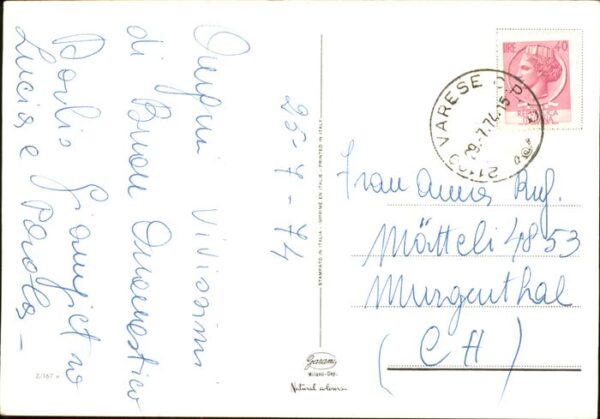 Auguri Vivissimi
di Buon Onomastico
Paolo Gianpietro
Lucia e Parola -
25-7-74
LIRE 40
21100 VARESE C.P.
29.7.74.15
Frau Anna Ruf.
Mätteli 4853
Murgenthal
(CH)
STAMPATO IN ITALIA - IMPRIMÉ EN ITALIE - PRINTED IN ITALY
Garami
Milano - Dep.
Natural colours
2/167